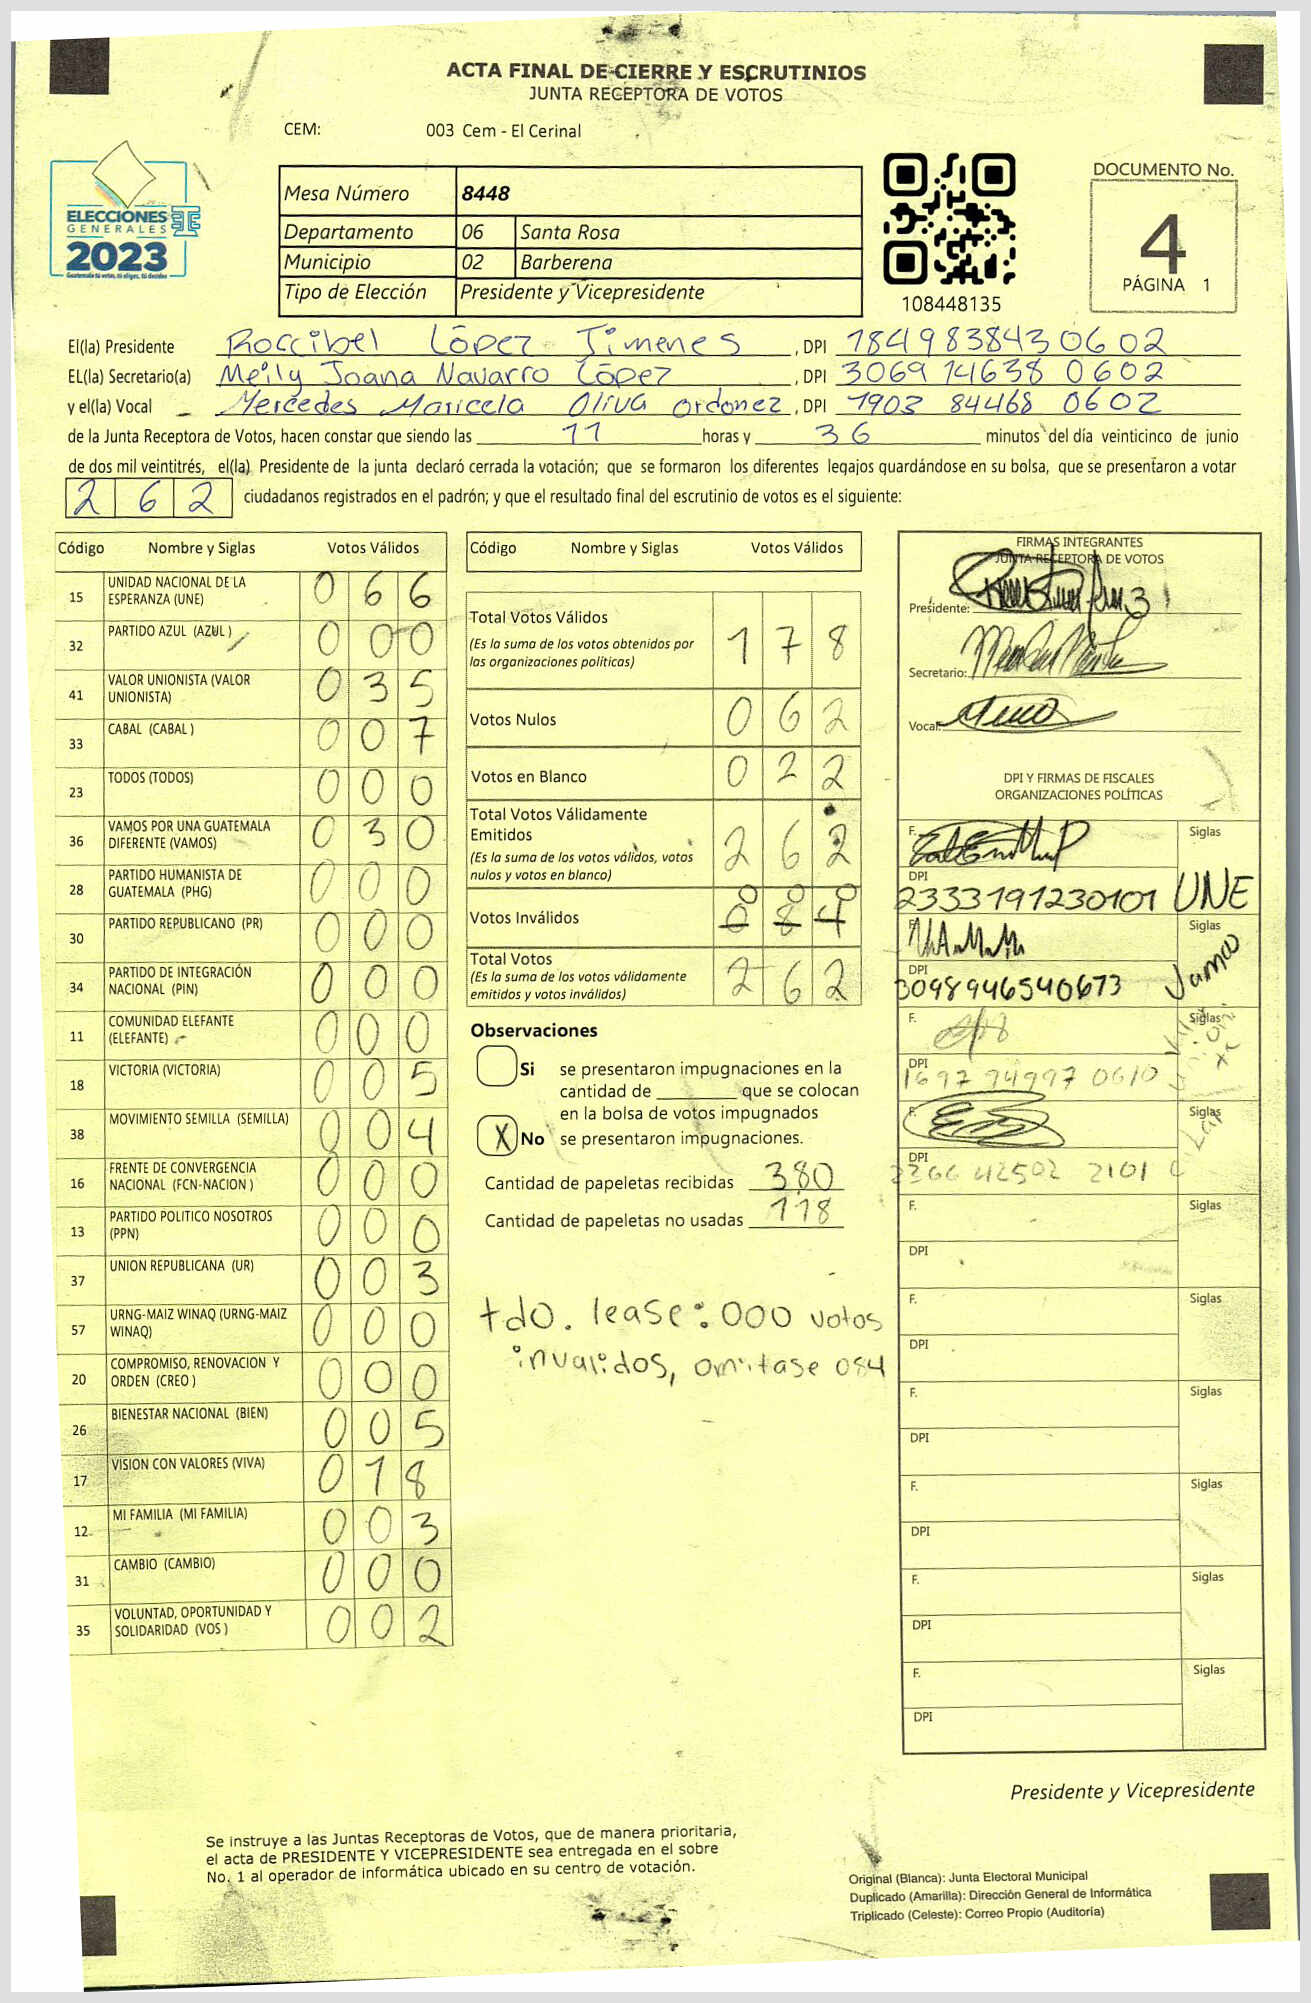 ACTA FINAL DE CIERRE Y ESCRUTINIOS
JUNTA RECEPTORA DE VOTOS
CEM: 003 Cem - El Cerinal
ELECCIONES
GENERALES
2023
Guatemala tú votas, tú eliges, tú decides
Mesa Número 8448
Departamento 06 Santa Rosa
Municipio 02 Barberena
Tipo de Elección Presidente y Vicepresidente
108448135
DOCUMENTO No.
4
PÁGINA 1
El(la) Presidente Roccibel López Jimenes , DPI 1849838430602
EL(la) Secretario(a) Meily Joana Navarro López , DPI 3069 14638 0602
y el(la) Vocal Mercedes Maricela Oliva Ordoñez , DPI 1903 84468 0602
de la Junta Receptora de Votos, hacen constar que siendo las 17 horas y 36 minutos del día veinticinco de junio
de dos mil veintitrés, el(la) Presidente de la junta declaró cerrada la votación; que se formaron los diferentes legajos guardándose en su bolsa, que se presentaron a votar
262 ciudadanos registrados en el padrón; y que el resultado final del escrutinio de votos es el siguiente:
Código Nombre y Siglas Votos Válidos
15 UNIDAD NACIONAL DE LA ESPERANZA (UNE) 066
32 PARTIDO AZUL (AZUL ) 000
41 VALOR UNIONISTA (VALOR UNIONISTA) 035
33 CABAL (CABAL ) 007
23 TODOS (TODOS) 000
36 VAMOS POR UNA GUATEMALA DIFERENTE (VAMOS) 030
28 PARTIDO HUMANISTA DE GUATEMALA (PHG) 000
30 PARTIDO REPUBLICANO (PR) 000
34 PARTIDO DE INTEGRACIÓN NACIONAL (PIN) 000
11 COMUNIDAD ELEFANTE (ELEFANTE) 000
18 VICTORIA (VICTORIA) 005
38 MOVIMIENTO SEMILLA (SEMILLA) 004
16 FRENTE DE CONVERGENCIA NACIONAL (FCN-NACION ) 000
13 PARTIDO POLITICO NOSOTROS (PPN) 000
37 UNION REPUBLICANA (UR) 003
57 URNG-MAIZ WINAQ (URNG-MAIZ WINAQ) 000
20 COMPROMISO, RENOVACION Y ORDEN (CREO ) 000
26 BIENESTAR NACIONAL (BIEN) 005
17 VISION CON VALORES (VIVA) 018
12 MI FAMILIA (MI FAMILIA) 003
31 CAMBIO (CAMBIO) 000
35 VOLUNTAD, OPORTUNIDAD Y SOLIDARIDAD (VOS ) 002
Código Nombre y Siglas Votos Válidos
Total Votos Válidos 178
(Es la suma de los votos obtenidos por
las organizaciones políticas)
Votos Nulos 062
Votos en Blanco 022
Total Votos Válidamente
Emitidos 262
(Es la suma de los votos válidos, votos
nulos y votos en blanco)
000
Votos Inválidos 084
Total Votos 262
(Es la suma de los votos válidamente
emitidos y votos inválidos)
Observaciones
Si se presentaron impugnaciones en la
cantidad de ________ que se colocan
en la bolsa de votos impugnados
X No se presentaron impugnaciones.
Cantidad de papeletas recibidas 380
Cantidad de papeletas no usadas 118
tdo. lease: 000 votos
invalidos, omitase 084
FIRMAS INTEGRANTES
JUNTA RECEPTORA DE VOTOS
Presidente:
Secretario:
Vocal:
DPI Y FIRMAS DE FISCALES
ORGANIZACIONES POLÍTICAS
F. Siglas
DPI
2333191230101 UNE
F. Siglas
DPI
3098946540673 Vamos
F. Siglas
DPI
1697 94997 0610
F. Siglas
DPI
2366 42502 2101
F. Siglas
DPI
F. Siglas
DPI
F. Siglas
DPI
F. Siglas
DPI
F. Siglas
DPI
F. Siglas
DPI
Presidente y Vicepresidente
Se instruye a las Juntas Receptoras de Votos, que de manera prioritaria,
el acta de PRESIDENTE Y VICEPRESIDENTE sea entregada en el sobre
No. 1 al operador de informática ubicado en su centro de votación.
Original (Blanca): Junta Electoral Municipal
Duplicado (Amarilla): Dirección General de Informática
Triplicado (Celeste): Correo Propio (Auditoría)